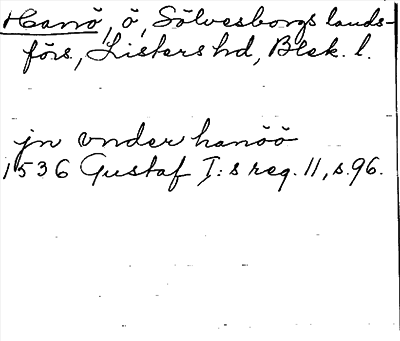 Hanö, ö, Sölvesborgs lands-
förs., Listers hd, Blek. l.
jn vnder hanöö
1536 Gustaf I:s reg. 11, s. 96.